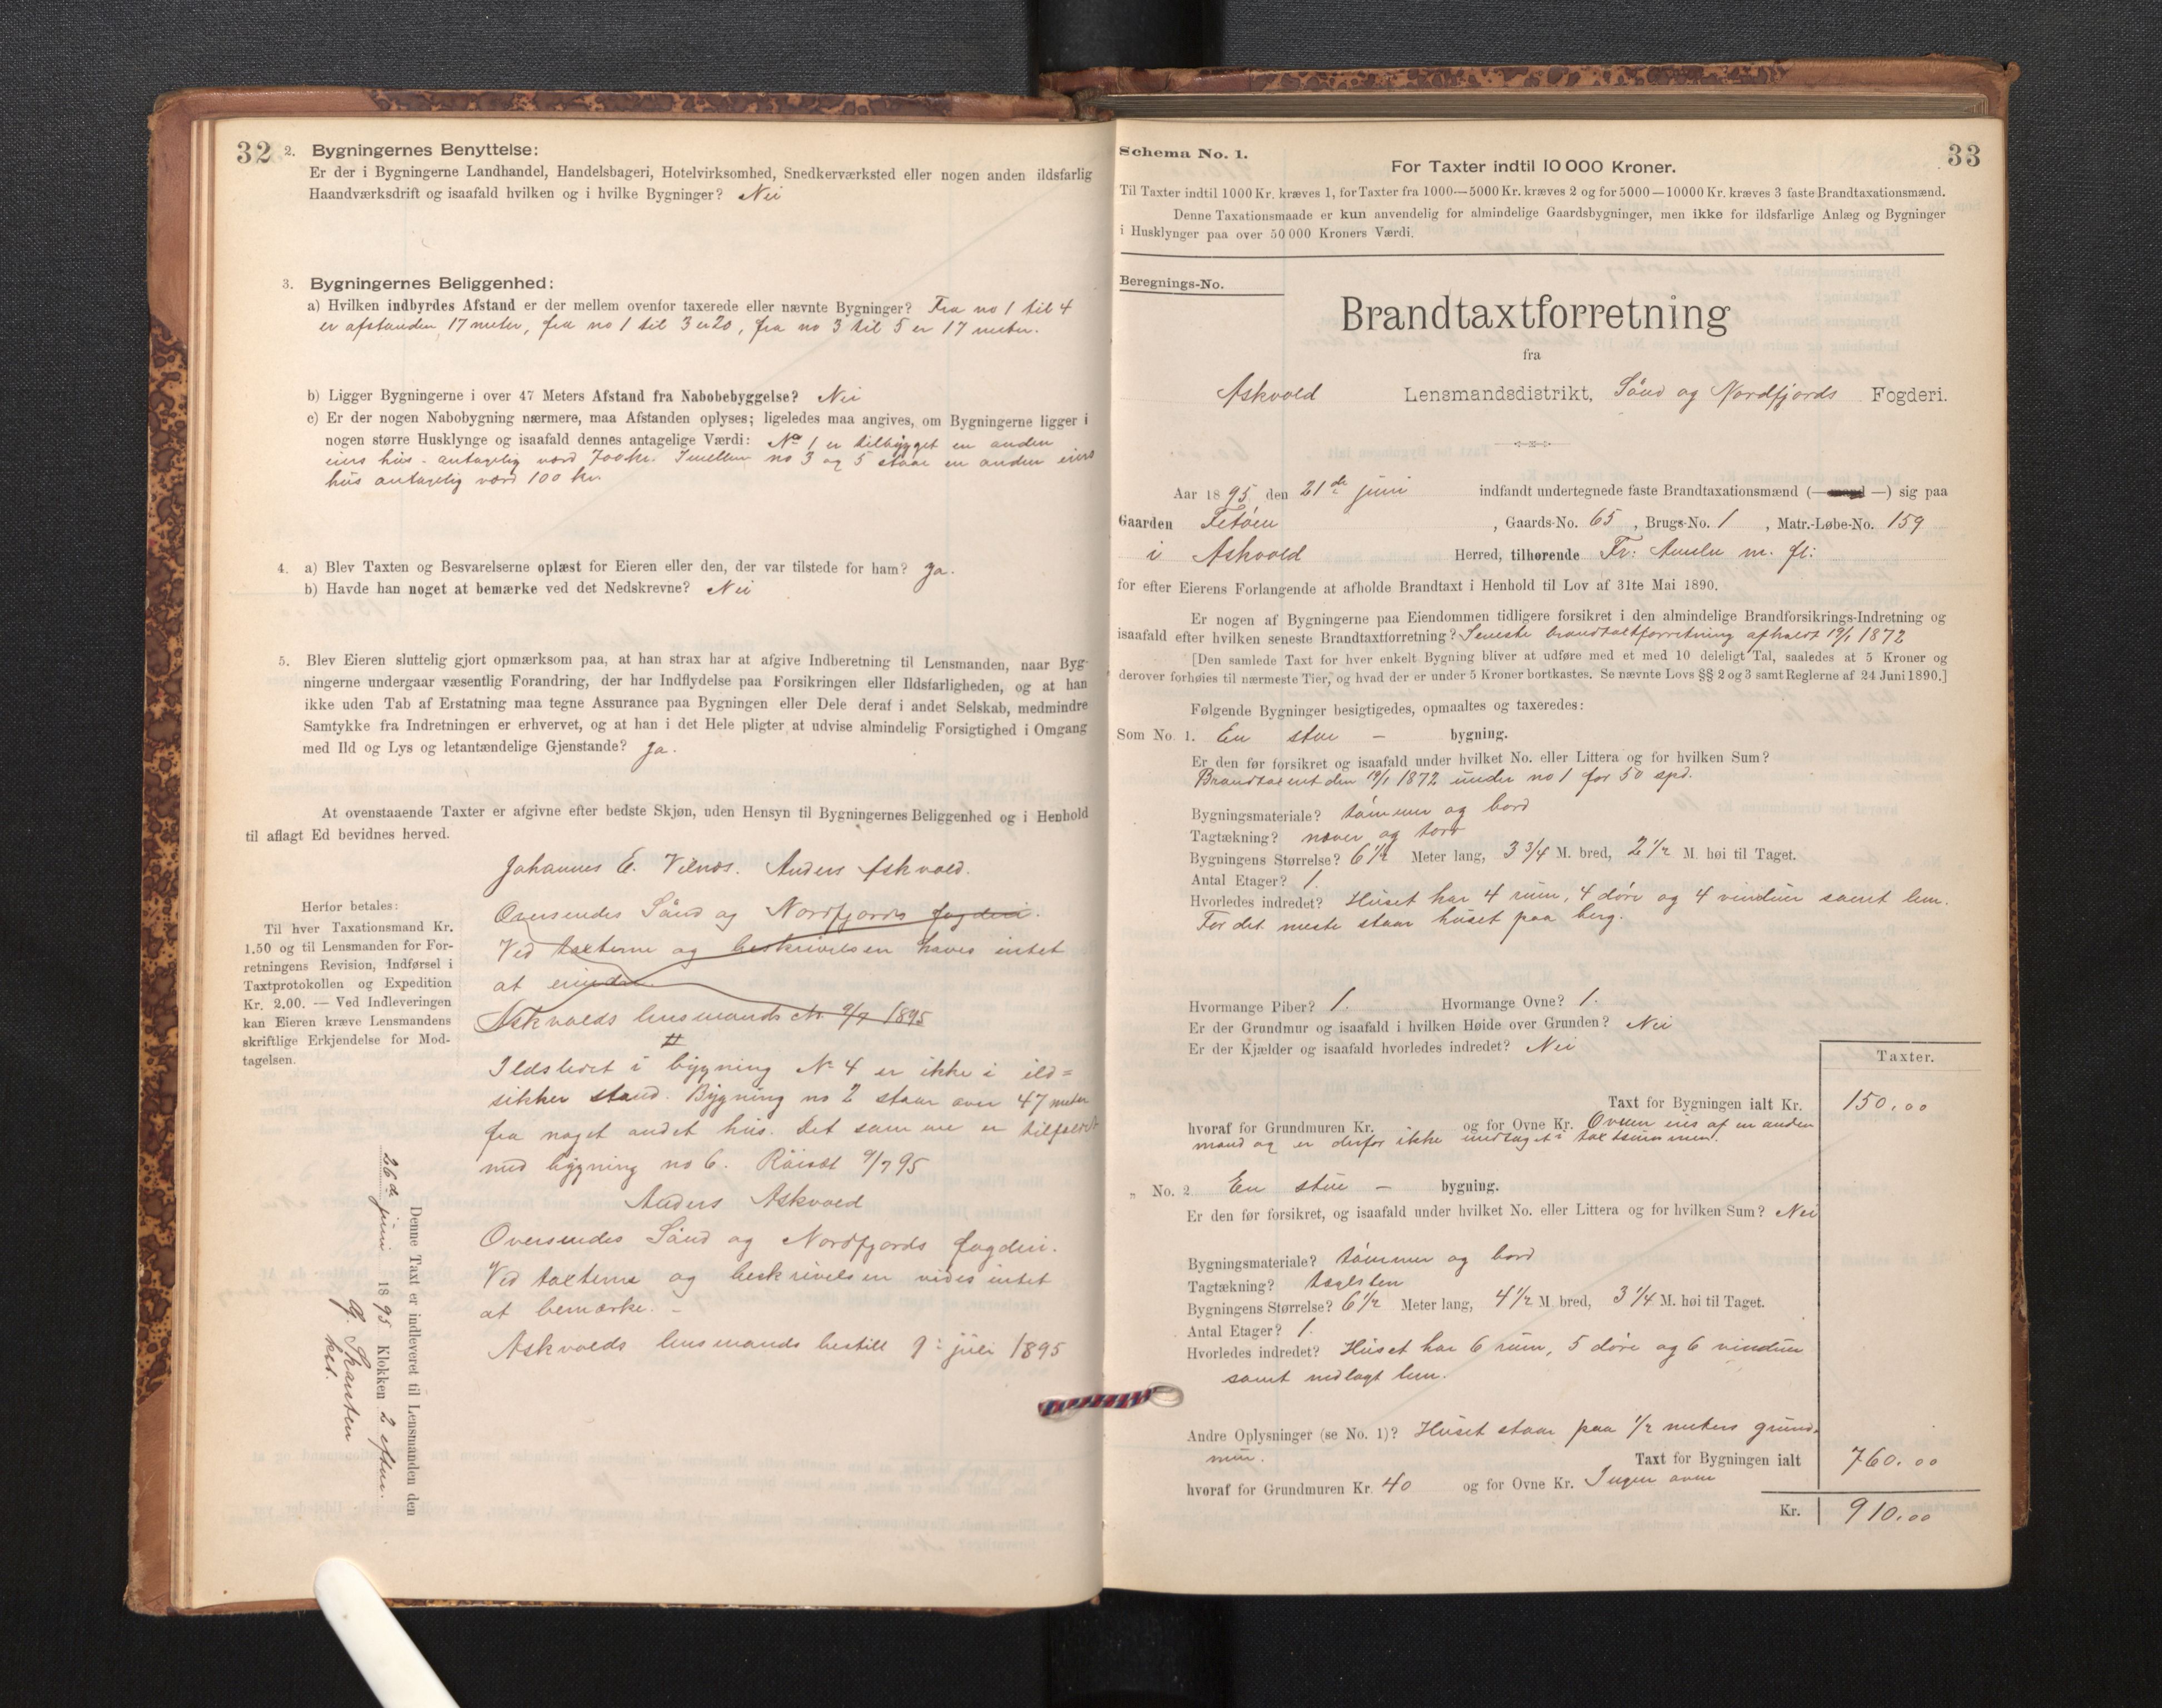 32
2. Bygningernes Benyttelse:
Er der i Bygningerne Landhandel, Handelsbageri, Hotelvirksomhed, Snedkerværksted eller nogen anden ildsfarlig
Haandværksdrift og isaafald hvilken og i hvilke Bygninger? Nei
3. Bygningernes Beliggenhed:
a) Hvilken indbyrdes Afstand er der mellem ovenfor taxerede eller nævnte Bygninger? Fra no 1 til 4
er afstanden 17 meter, fra no 1 til 3 er 20, fra no 3 til 5 er 17 meter.
b) Ligger Bygningerne i over 47 Meters Afstand fra Nabobebyggelse? Nei
c) Er der nogen Nabobygning nærmere, maa Afstanden oplyses; ligeledes maa angives, om Bygningerne ligger i
nogen større Husklynge og isaafald dennes antagelige Værdi: No 1 er tilbygget en anden
eiers hus - antagelig værd 700 kr. Imellem no 3 og 5 staar en anden eiers
hus antagelig værd 100 kr.
4. a) Blev Taxten og Besvarelserne oplæst for Eieren eller den, der var tilstede for ham? Ja.
b) Havde han noget at bemærke ved det Nedskrevne? Nei
5. Blev Eieren sluttelig gjort opmærksom paa, at han strax har at afgive Indberetning til Lensmanden, naar Byg-
ningerne undergaar væsentlig Forandring, der har Indflydelse paa Forsikringen eller Ildsfarligheden, og at han
ikke uden Tab af Erstatning maa tegne Assurance paa Bygningen eller Dele deraf i andet Selskab, medmindre
Samtykke fra Indretningen er erhvervet, og at han i det Hele pligter at udvise almindelig Forsigtighed i Omgang
med Ild og Lys og letantændelige Gjenstande? Ja.
At ovenstaaende Taxter er afgivne efter bedste Skjøn, uden Hensyn til Bygningernes Beliggenhed og i Henhold
til aflagt Ed bevidnes herved.
Johannes E. Vilnæs. Anders Askvold.
Herfor betales:
Til hver Taxationsmand Kr.
1.50 og til Lensmanden for For-
retningens Revision, Indførsel i
Taxtprotokollen og Expedition
Kr. 2.00. — Ved Indleveringen
kan Eieren kræve Lensmandens
skriftlige Erkjendelse for Mod-
tagelsen.
Oversendes Sönd og Nordfjords fogderi.
Ved taxterne og beskrivelsen haves intet
at erindre.
Askvolds lensmands 9/7 1895
Ildstedet i bygning No 4 er ikke i ild=
sikker stand. Bygning no 2 staar over 47 meter
fra noget andet hus. Det samme er tilfældet
med bygning no 6. 9/7 95
Anders Askvold
Oversendes Sönd og Nordfjords fogderi.
Ved taxterne og beskrivelsen vides intet
at bemærke. -
Askvolds lensmandsbestill 9: juli 1895
Denne Taxt er indleveret til Lensmanden den
26de juni 1895 Klokken 2 efterm.
33
Schema No. 1.
For Taxter indtil 10 000 Kroner.
Til Taxter indtil 1000 Kr. kræves 1, for Taxter fra 1000—5000 Kr. kræves 2 og for 5000—10000 Kr. kræves 3 faste Brandtaxationsmænd.
Denne Taxationsmaade er kun anvendelig for almindelige Gaardsbygninger, men ikke for ildsfarlige Anlæg og Bygninger
i Husklynger paa over 50 000 Kroners Værdi.
Beregnings-No.
Brandtaxtforretning
fra
Askvold Lensmandsdistrikt, Sönd og Nordfjords Fogderi.
Aar 1895 den 21de juni indfandt undertegnede faste Brandtaxationsmænd (— —) sig paa
Gaarden , Gaards-No. 65, Brugs-No. 1, Matr.-Løbe-No. 159
i Askvold Herred, tilhørende Fr: m. fl:
for efter Eierens Forlangende at afholde Brandtaxt i Henhold til Lov af 31te Mai 1890.
Er nogen af Bygningerne paa Eiendommen tidligere forsikret i den almindelige Brandforsikrings-Indretning og
isaafald efter hvilken seneste Brandtaxtforretning? Seneste brandtaxtforretning afholdt 19/1 1872
[Den samlede Taxt for hver enkelt Bygning bliver at udføre med et med 10 deleligt Tal, saaledes at 5 Kroner og
derover forhøies til nærmeste Tier, og hvad der er under 5 Kroner bortkastes. Se nævnte Lovs §§ 2 og 3 samt Reglerne af 24 Juni 1890.]
Følgende Bygninger besigtigedes, opmaaltes og taxeredes:
Som No. 1. En stue - bygning.
Er den før forsikret og isaafald under hvilket No. eller Littera og for hvilken Sum?
Brandtaxert den 19/1 1872 under no 1 for 50 spd.
Bygningsmateriale? tömmer og bord
Tagtækning? næver og torv
Bygningens Størrelse? 6 1/2 Meter lang, 3 3/4 M. bred, 2 1/2 M. høi til Taget.
Antal Etager? 1.
Hvorledes indredet? Huset har 4 rum, 4 döre og 4 vinduer samt lem.
For det meste staar huset paa berg.
Hvormange Piber? 1. Hvormange Ovne? 1.
Er der Grundmur og isaafald i hvilken Høide over Grunden? Nei
Er der Kjælder og isaafald hvorledes indredet? Nei
Taxter.
Taxt for Bygningen ialt Kr. 150.00
hvoraf for Grundmuren Kr. og for Ovne Kr. Ovnen eies af en anden
mand og er derfor ikke indtaget i taxtsummen.
„ No. 2 En stue - bygning.
Er den før forsikret, og isaafald under hvilket No. eller Littera og for hvilken Sum? Nei
Bygningsmateriale? tömmer og bord
Tagtækning? taglsten
Bygningens Størrelse? 6 1/2 Meter lang, 4 1/2 M bred, 3 1/4 M. høi til Taget.
Antal Etager? 1.
Hvorledes indredet? Huset har 6 rum, 5 döre og 6 vinduer
samt nedlagt lem.
Andre Oplysninger (se No. 1)? Huset staar paa 1/2 meters grund-
mur.
Taxt for Bygningen ialt 760.00
hvoraf for Grundmuren Kr. 40 og for Ovne Kr. Ingen ovne
Kr. 910.00